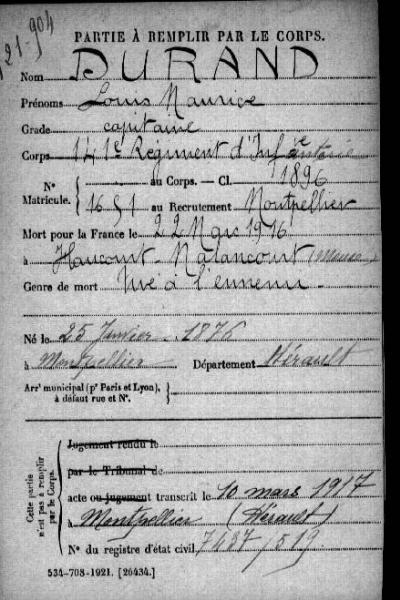 121-904
PARTIE À REMPLIR PAR LE CORPS.
Nom DURAND
Prénoms Louis Maurice
Grade capitaine
Corps 141e Régiment d'Infanterie
N° Matricule. { au Corps. — Cl. 1896
1651 au Recrutement Montpellier
Mort pour la France le 22 Mars 1916
à Haucourt - Malancourt (Meuse)
Genre de mort Tué à l'ennemi
Né le 25 Janvier 1876
à Montpellier Département Hérault
Arrt municipal (pr Paris et Lyon), à défaut rue et N°. }
Cette partie n'est pas à remplir par le Corps.
Jugement rendu le
par le Tribunal de
acte ou jugement transcrit le 10 mars 1917
à Montpellier (Hérault)
N° du registre d'état civil 7427/519
534-708-1921. [26434.]